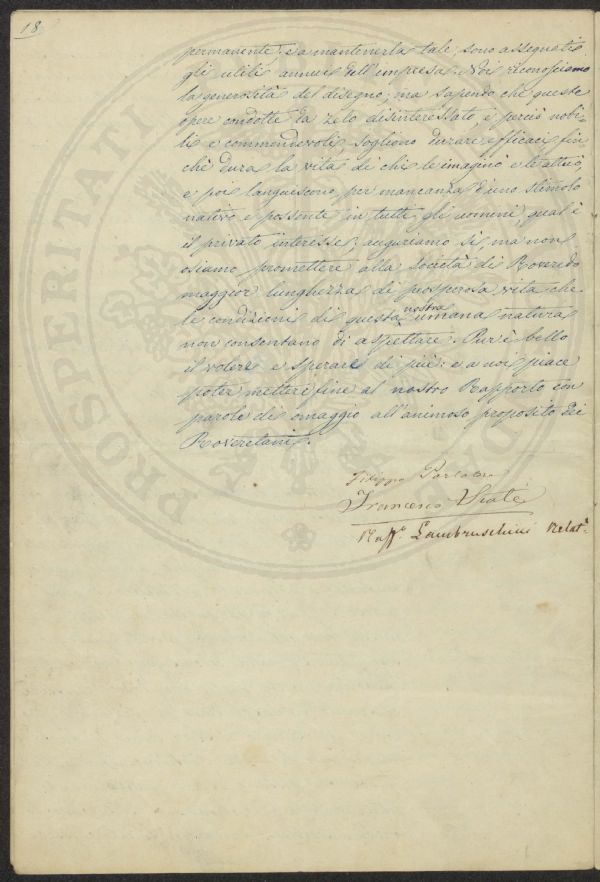 18
permanente; e a mantenerla tale sono assegnati
gli utili annui dell'impresa. Noi riconosciamo
la generosità del disegno; ma sapendo che queste
opere condotte da zelo disinteressato, e perciò nobi-
li e commendevoli, sogliono durare efficaci fin
chè dura la vita di chi le imaginò e le attuò,
e poi languiscono, per mancanza d'uno stimolo
nativo e possente in tutti gli uomini, qual è
il privato interesse; auguriamo sì, ma non
osiamo promettere alla società di Roveredo
maggior lunghezza di prosperosa vita che
le condizioni di questa nostra umana natura
non consentano di aspettare. Pur è bello
il volere e sperare di più: e a noi piace
poter mettere fine al nostro Rapporto con
parole di omaggio all'animoso proposito dei
Roveretani.
Filippo Parlatore
Francesco
Raff.o Lambruschini Relat.e
PROSPERITATI